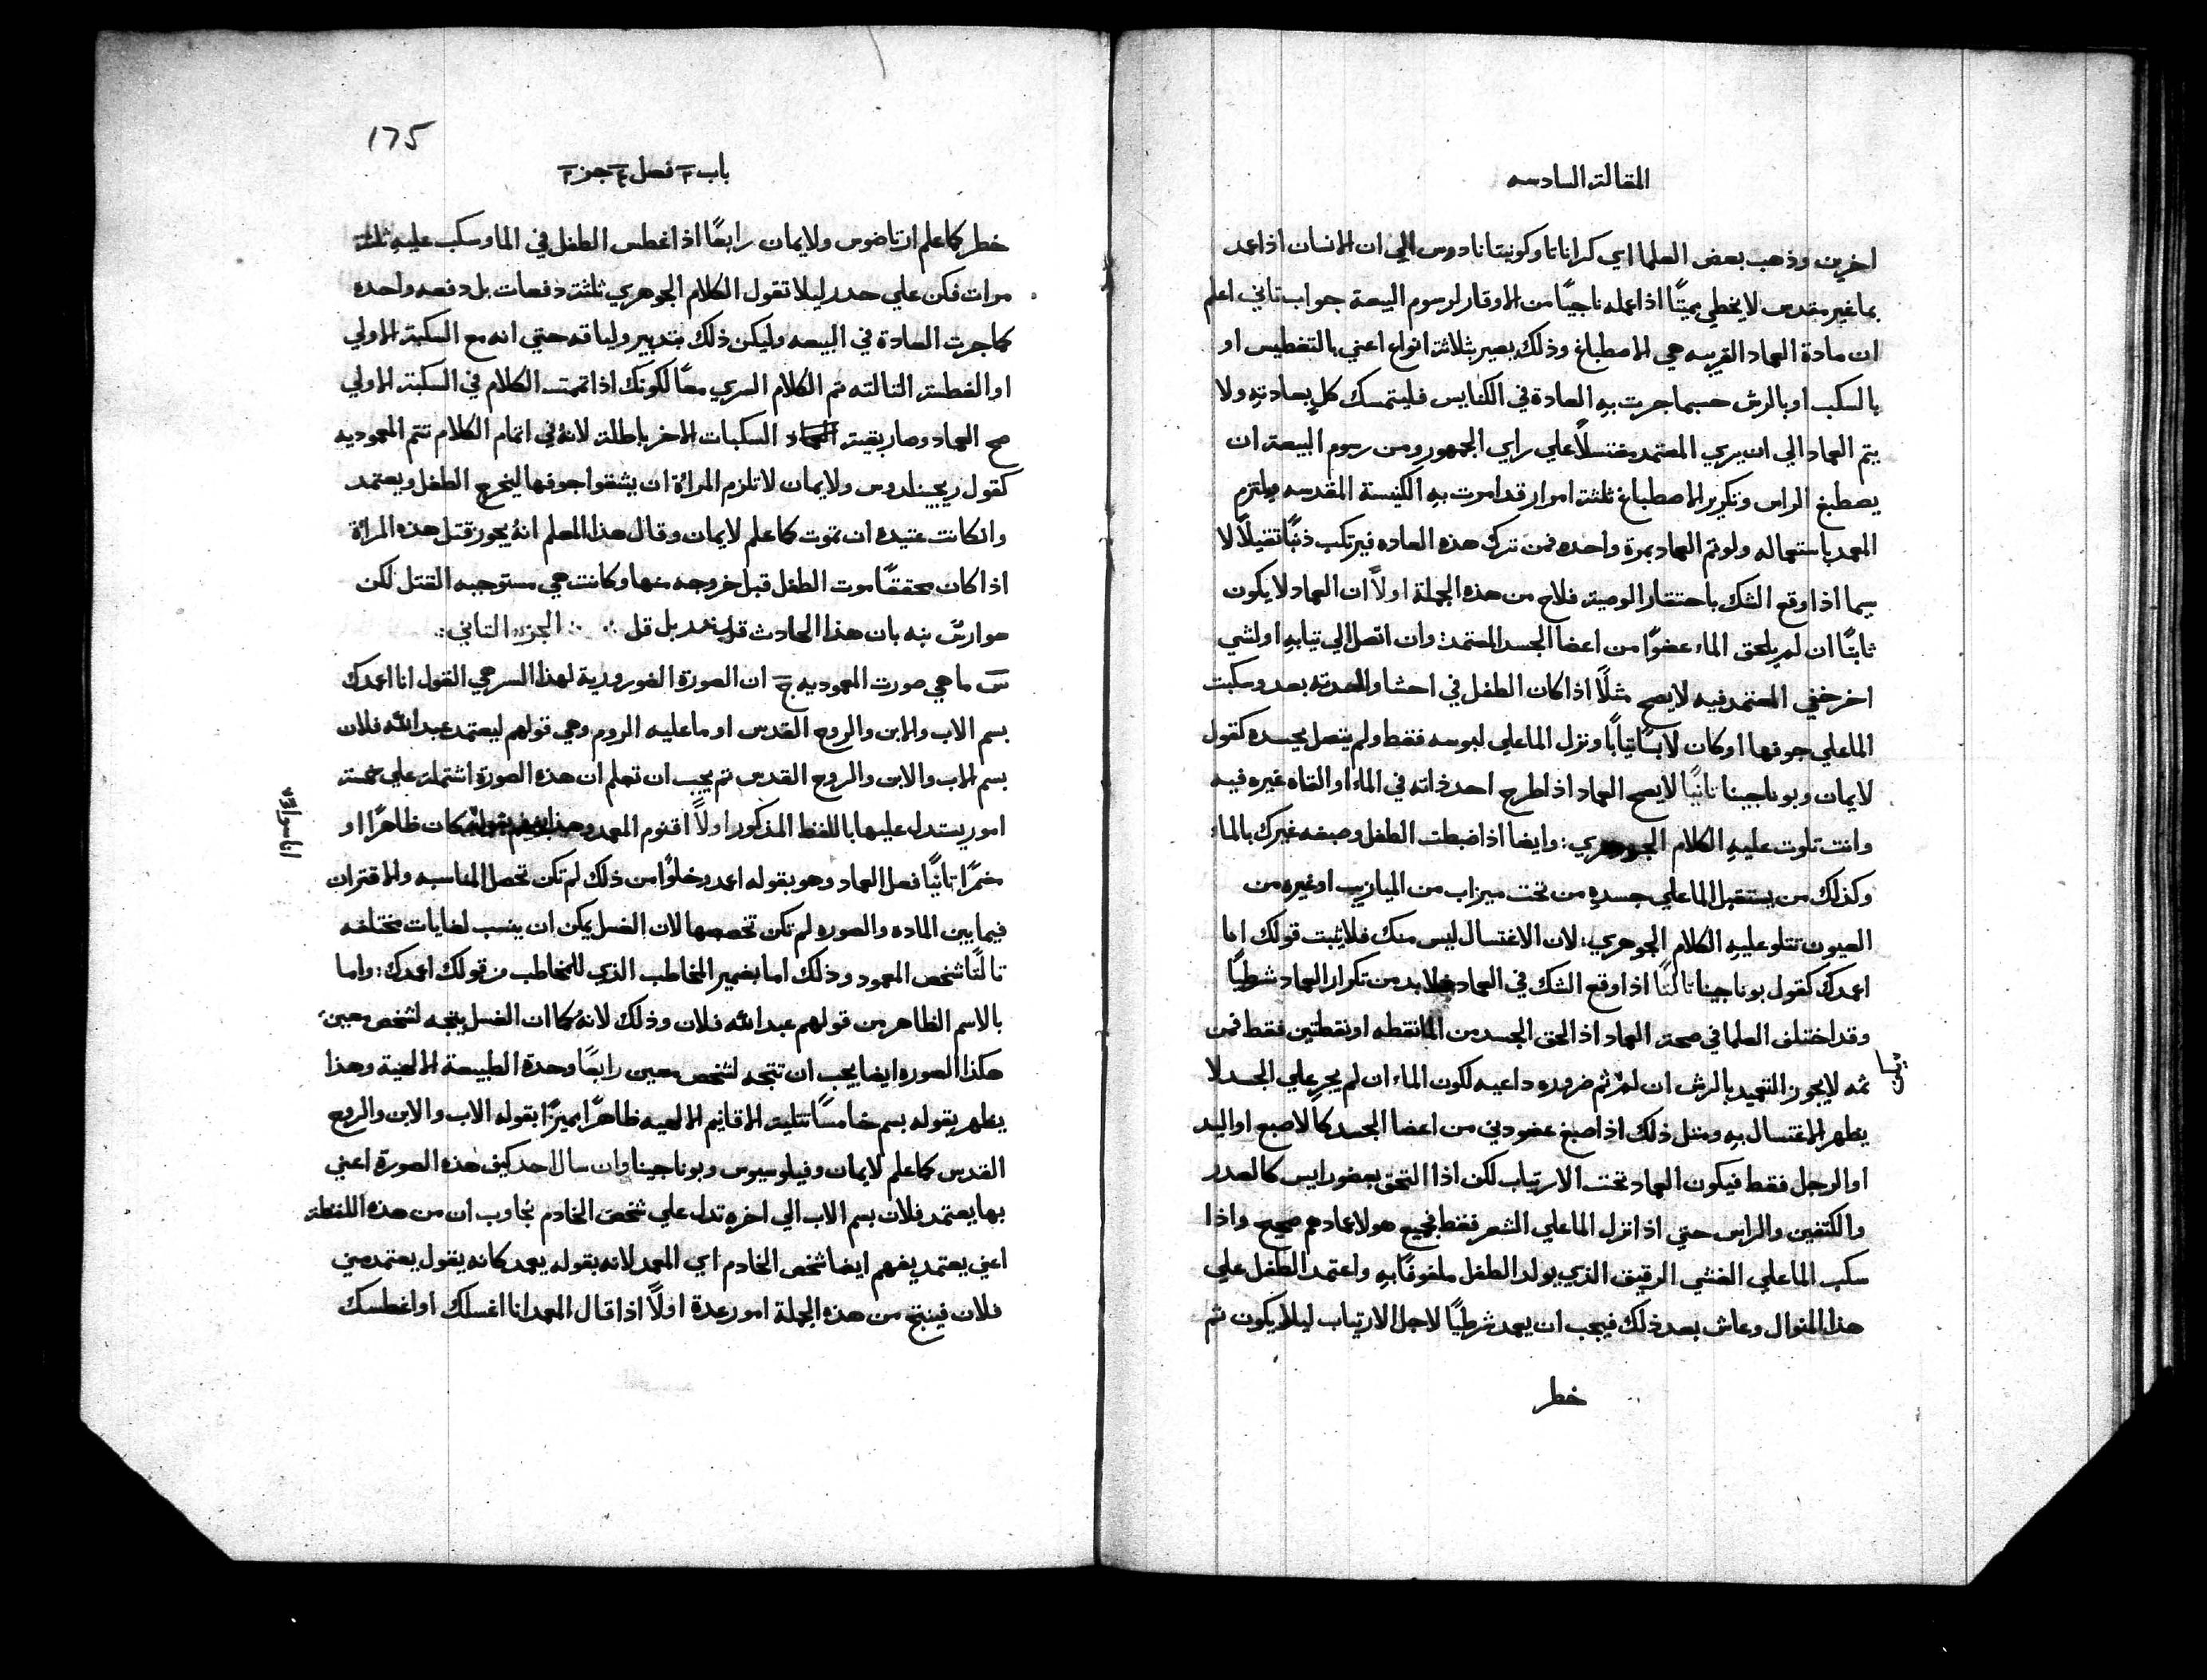 المقالة السادسه
اخرين وذهب بعض العلما اي كراناتا وكونيتانادوس الي ان الانسان اذا عمد
بما غير مقدس لا يخطي مميتًا اذا عمله ناجيًا من الاوقار لرسوم البيعة جواب تاني اعلم
ان مادة العماد القريبه هي الاصطباغ وذلك يصير بثلاثة انواع اعني بالتغطيس او
بالسكب او بالرش حسبما جرت به العادة في الكنايس فليتمسك كل بعادته ولا
يتم العماد الي ان يري المعتمد مغتسلًا علي راي الجمهور ومن رسوم البيعة ان
يصطبغ الراس وتكرير الاصطباغ ثلثة امرار قد امرت به الكنيسة المقدسه ويلتزم
المعمد باستعماله ولو تم العماد بمرة واحده فمن ترك هذه العاده فيرتكب ذنبًا ثقيلًا لا
سيما اذا وقع الشك باحتقار الوصية فلاح من هذه الجملة اولًا ان العماد لا يكون
ثابتًا ان لم يلحق الماء عضوًا من اعضا الجسد المعتمد: وان اتصل الي تيابه او لشي
اخر خفي المعتمد فيه لا يصح مثلًا اذا كان الطفل في احشا والدته بعد وسكبت
الما علي جوفها او كان لابسًا تيابًا ونزل الما علي لبوسه فقط ولم يتصل بجسده كقول
لايمان وبوناجينا تانيًا لا يصح العماد اذا طرح احد ذاته في الماء او القاه غيره فيه
وانت تلوت عليه الكلام الجوهري: وايضا اذا ضبطت الطفل وصبغه غيرك بالماء
وكذلك من يستقبل الما علي جسده من تحت ميزاب من الميازيب او غيره من
العيون تتلو عليه الكلام الجوهري: لان الاغتسال ليس منك فلا يثبت قولك انا
اعمدك كقول بوناجينا تالتًا اذا وقع الشك في العماد فلا بد من تكرار العماد شرطيًا
وقد اختلف العلما في صحة العماد اذا لحق الجسد من الما نقطه او نقطتين فقط فمن
ثمه لا يجوز التعميد بالرش ان لم ثم ضروره داعيه لكون الماء ان لم يجر علي الجسد لا
يظهر الاغتسال به ومثل ذلك اذا صبغ عضو دني من اعضا الجسد كالاصبع او اليد
او الرجل فقط فيكون العماد تحت الارتياب لكن اذا التحق بعضو رايس كالصدر
والكتفين والراس حتي اذا نزل الما علي الشعر فقط فجميع هولا عمادهم صحيح واذا
سكب الما علي الغشي الرقيق الذي يولد الطفل ملفوفًا به واعتمد الطفل علي
هذا المنوال وعاش بعد ذلك فيجب ان يعمد شرطيًا لاجل الارتياب ليلا يكون ثم
خطر
175
باب ٢ فصل ٤ جز ٢
خطر كما علم ارتاضوس ولايمان رابعًا اذا غطس الطفل في الما وسكب عليه ثلثة
مرات فكن علي حدر ليلا تقول الكلام الجوهري ثلثة دفعات بل دفعه واحده
كما جرت العادة في البيعه وليكن ذلك بتدبير ولياقه حتي انه مع السكبة الاولي
او الغطسة التالته تم الكلام السري معًا لكونك اذا تممت الكلام في السكبة الاولي
صح العماد وصار بقية السكبات الاخر باطلة لانه في اتمام الكلام تتم المعموديه
كقول ريجينلدوس ولايمان لا تلزم المراة ان يشقوا جوفها ليخرج الطفل ويعتمد
وان كانت عتيده ان تموت كما علم لايمان وقال هذا المعلم انه يجوز قتل هذه المراة
اذا كان محققًا موت الطفل قبل خروجه منها وكانت هي مستوجبه القتل لكن
بنه بان هذا الحادث بل قل ∴ الجزء التاني:
س ما هي صورت المعموديه ج ان الصورة الضرورية لهذا السر هي القول انا اعمدك
بسم الاب والابن والروح القدس او ما عليه الروم وهي قولهم ليعتمد عبد الله فلان
بسم الاب والابن والروح القدس تم يجب ان تعلم ان هذه الصورة اشتملت علي خمسة
امور يستدل عليها باللفظ المذكور اولًا اقنوم المعمد وهذا كان ظاهرًا او
انا سوا
مضمرًا تانيًا فعل العماد وهو بقوله اعمد وخلوًا من ذلك لم تكن تحصل المناسبه والاقتران
فيما بين الماده والصوره لم تكن تخصصها لان الغسل يمكن ان ينسب لغايات مختلفه
تالتًا شخص المعمود وذلك اما بضمير المخاطب الذي للمخاطب من قولك اعمدك: واما
بالاسم الظاهر من قولهم عبد الله فلان وذلك لانه كما ان الغسل يتجه لشخص معين
هكذا الصوره ايضا يجب ان تتجه لشخص معين رابعًا وحدة الطبيعة الالهية وهذا
يظهر بقوله بسم خامسًا تتليت الاقانيم الالهيه ظاهرًا مميزًا بقوله الاب والابن والروح
القدس كما علم لايمان وفيلوسيوس وبوناجينا وان سال احد كيف هذه الصورة اعني
بها يعتمد فلان بسم الاب الي اخره تدل علي شخص الخادم نجاوب ان من هذه اللفظة
اعني يعتمد يفهم ايضا شخص الخادم اي المعمد لانه بقوله يعمد كانه يقول يعتمد مني
فلان فينتج من هذه الجملة امور عدة اولًا اذا قال المعمد انا اغسلك او اغطسك